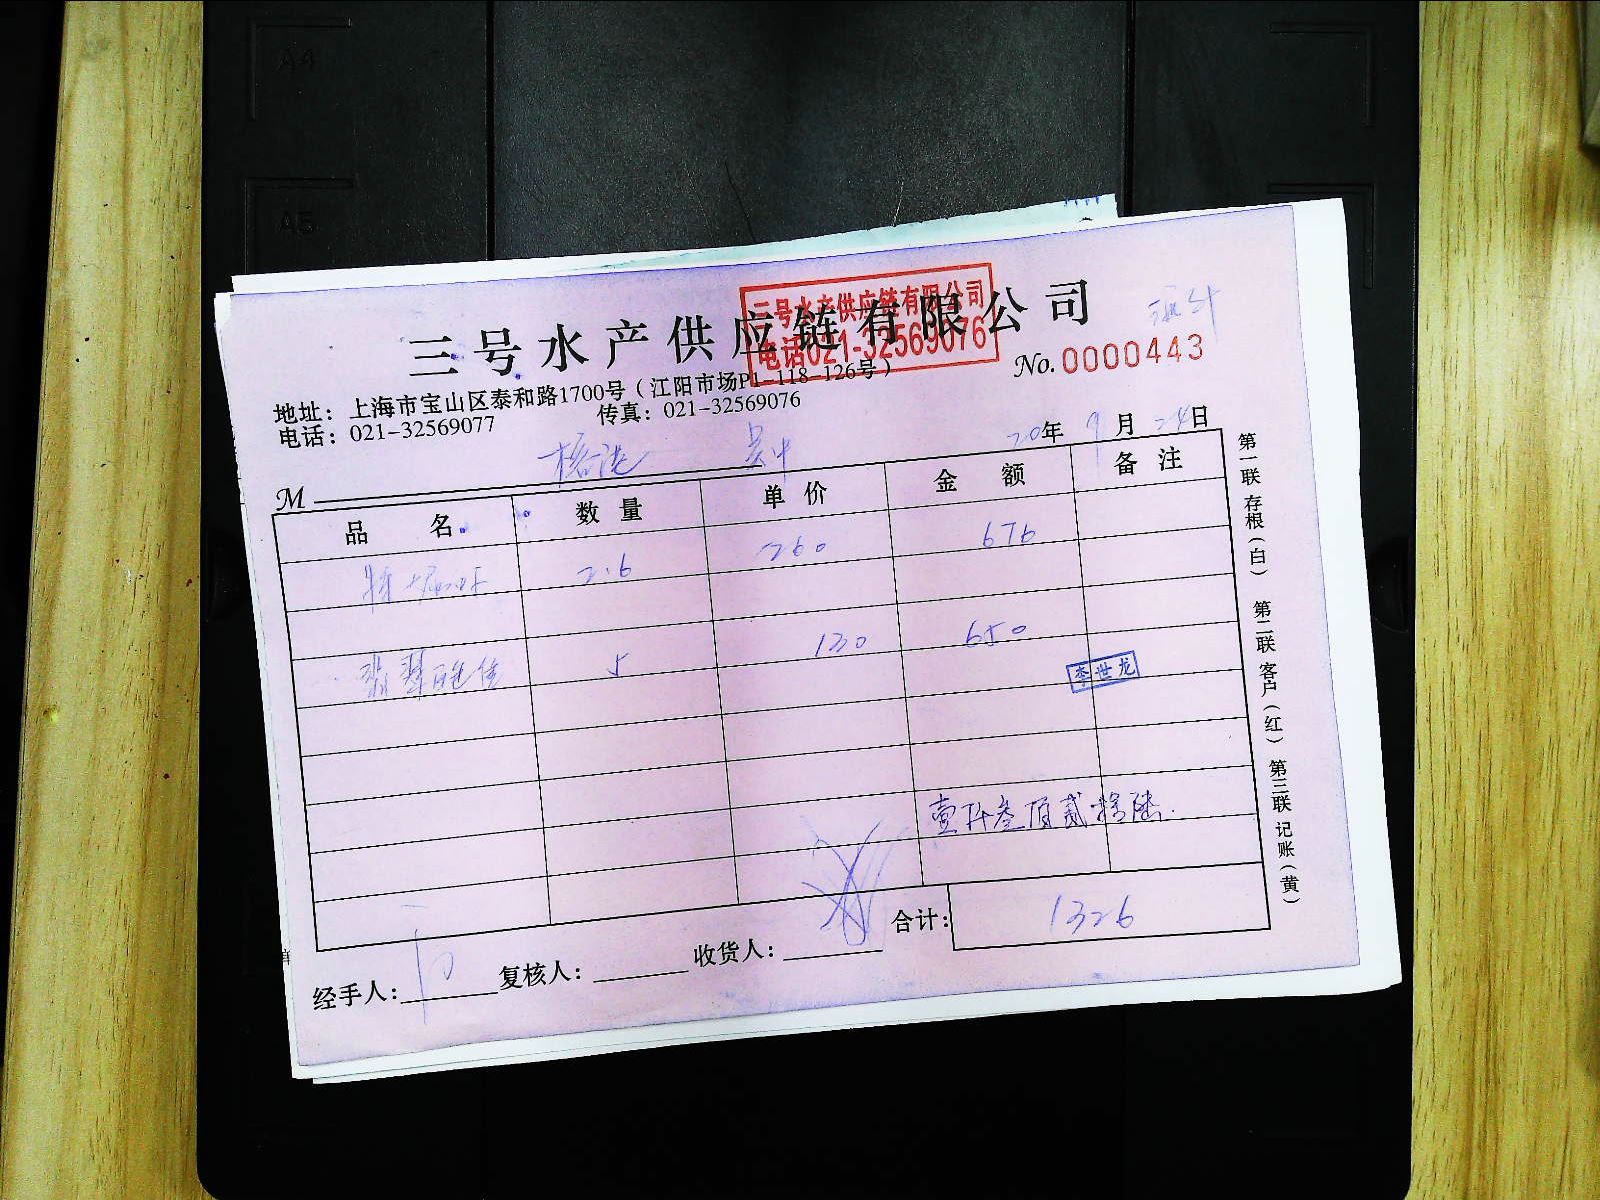 A4
A5
三号水产供应链有限公司
三号水产供应链有限公司
电话021-32569076
No. 0000443
地址：上海市宝山区泰和路1700号（江阳市场P1-118-126号）
电话：021-32569077 传真：021-32569076
20年 9月 24日
M
品名 数量 单价 金额 备注
2.6 260 676
翡翠 5 130 650
李世龙
壹仟叁佰贰拾陆
合计：1326
经手人： 复核人： 收货人：
第一联 存根（白） 第二联 客户（红） 第三联 记账（黄）